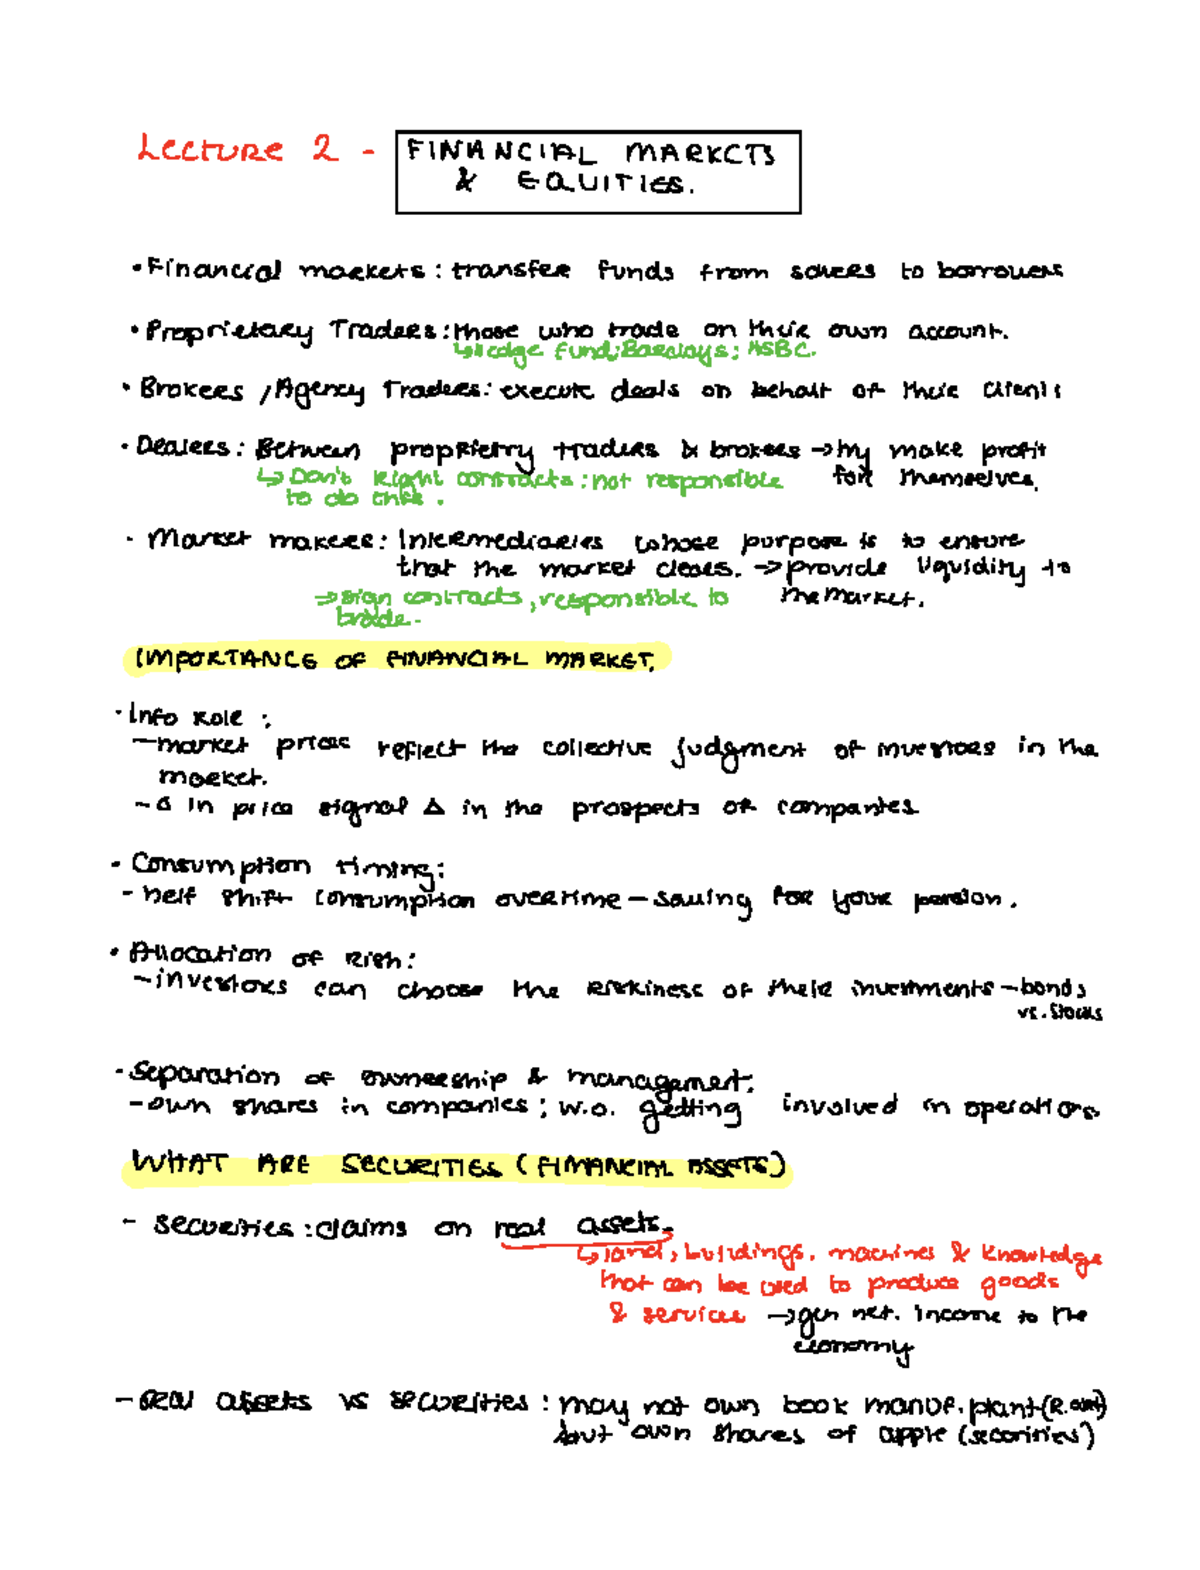 Lecture 2 - FINANCIAL MARKETS
& EQUITIES.
• Financial markets: transfer funds from savers to borrowers
• Proprietary Traders: those who trade on their own account.
↳ Hedge fund; Barclays; HSBC.
• Brokers / Agency Traders: execute deals on behalf of their clients
• Dealers: Between proprietry traders & brokers → try make profit
for themselves.
↳ Don't sign contracts: not responsible
to do this.
• Market makers: Intermediaries whose purpose is to ensure
that the market clears. → provide liquidity to
the market.
→ sign contracts, responsible to
trade.
IMPORTANCE OF FINANCIAL MARKET.
• Info Role:
- market prices reflect the collective judgment of investors in the
market.
- Δ in price signal Δ in the prospects of companies
• Consumption timing:
- help shift consumption overtime - saving for your pension.
• Allocation of Risk:
- investors can choose the riskiness of their investments - bonds
vs. stocks
• Separation of ownership & management:
- own shares in companies; w.o. getting involved in operations
WHAT ARE SECURITIES (FINANCIAL ASSETS)
- securities: claims on real assets.
↳ land, buildings, machines & knowledge
that can be used to produce goods
& services → gen net. income to the
economy
- real assets vs securities: may not own book manuf. plant (R. asset)
but own shares of apple (securities)